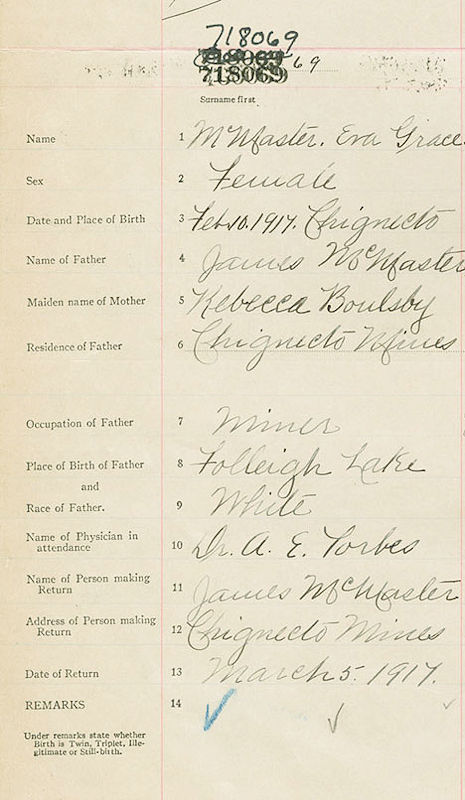 718069
718069
69
718069
Surname first
Name 1 McMaster. Eva Grace
Sex 2 Female
Date and Place of Birth 3 Feb. 10. 1917. Chignecto
Name of Father 4 James McMaster
Maiden name of Mother 5 Rebecca Boulsby
Residence of Father 6 Chignecto Mines
Occupation of Father 7 Miner
Place of Birth of Father 8 Folleigh Lake
and
Race of Father. 9 White
Name of Physician in
attendance 10 Dr. A. E. Forbes
Name of Person making
Return 11 James McMaster
Address of Person making
Return 12 Chignecto Mines
Date of Return 13 March 5. 1917.
REMARKS 14
Under remarks state whether
Birth is Twin, Triplet, Ille-
gitimate or Still-birth.